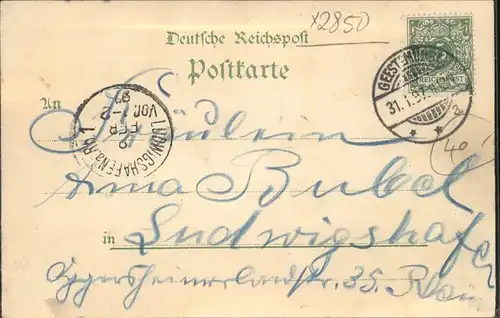 x2850
Deutsche Reichspost
Postkarte
REICHSPOST
GEESTEMÜNDE
31.1.97.
An Fräulein
LUDWIGSHAFEN a. Rh. 1
FEB
VOR
97
Anna Bubel
40
in Ludwigshafen
Oggersheimerlandstr. 35. Rhein